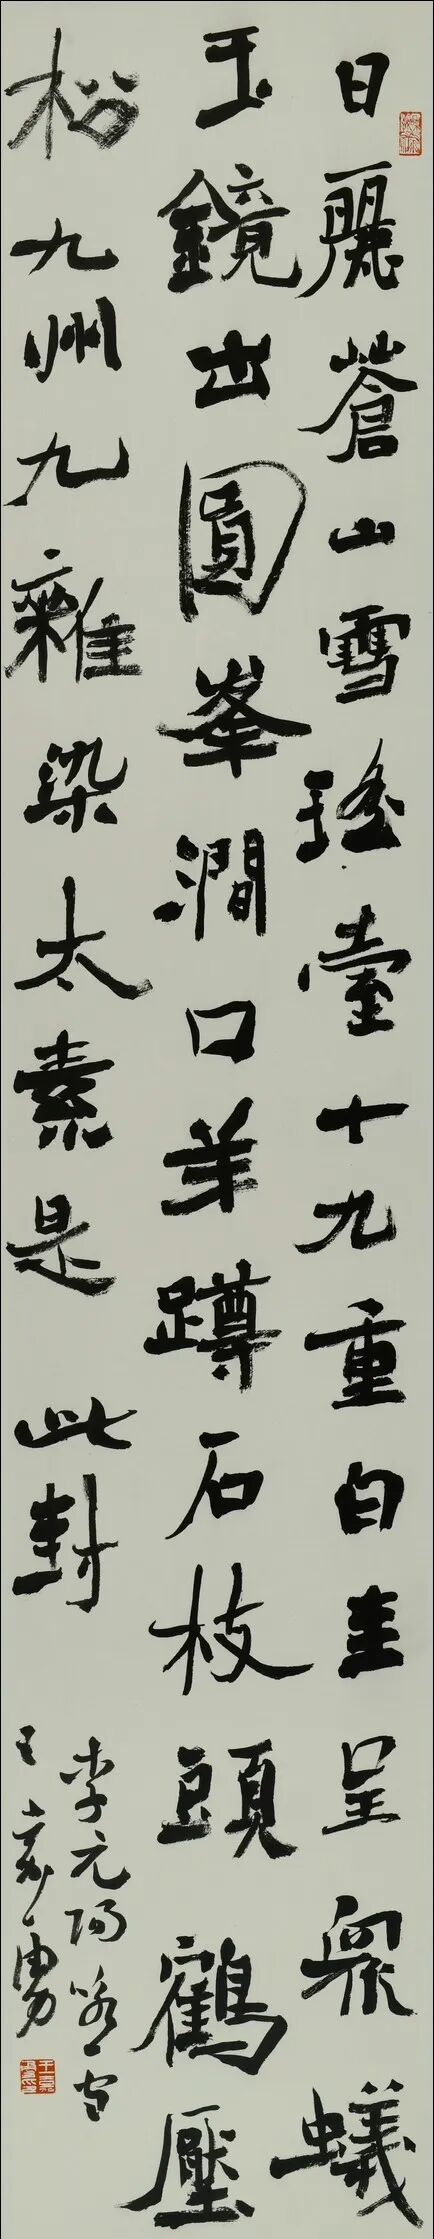 日麗蒼山雪瑤臺十九重白圭呈眾蟻
玉鏡出圓峯澗口羊蹲石枝頭鶴壓
松九州九雜染太素是此封
李元陽詠雪
王 勇